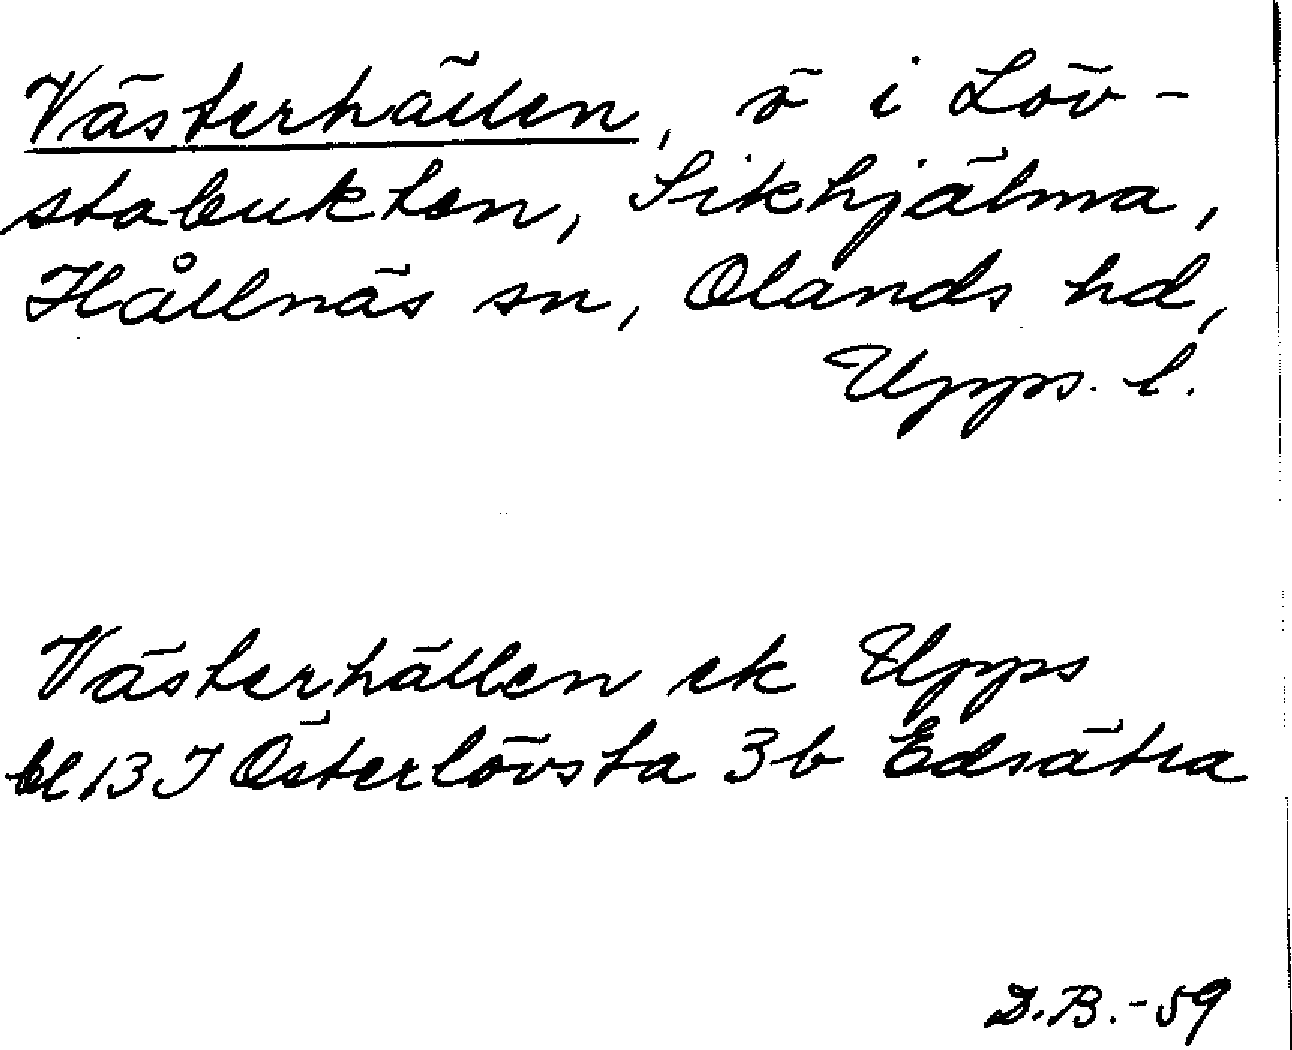 Västerhällen, ö i Löv-
stabukten, Sikhjälma,
Hållnäs sn, Olands hd,
Upps. l.
Västerhällen ek Upps
bl 13 I Österlövsta 3b Edsätra
D.B.-59